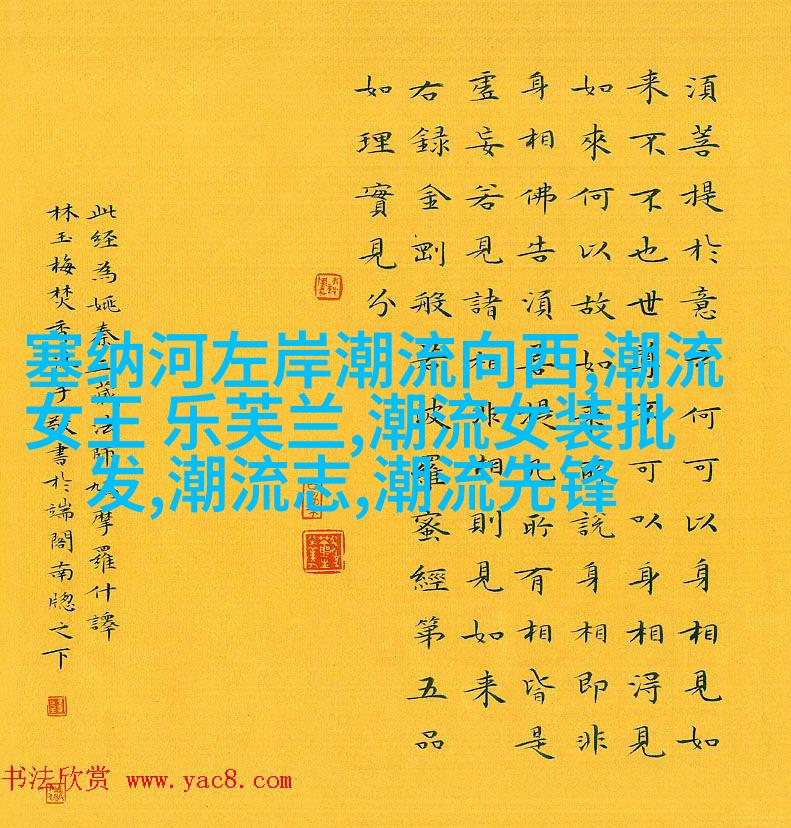 湏菩提於意云何可以身相見如
来不不也世尊不可以身相淂見
如來何以故如来所說身相即非
身相佛告湏菩提凡所有相皆是
虛妄若見諸相非相則見如来
右録金剛般若波羅蜜經第五品
如理實見分
此经為姚秦三藏法師鳩摩羅什譯
林玉梅焚香敬書於端閣南牕之下
塞纳河左岸潮流向西,潮流
女王 乐芙兰,潮流女装批
发,潮流志,潮流先锋
书法欣赏 www.yac8.com